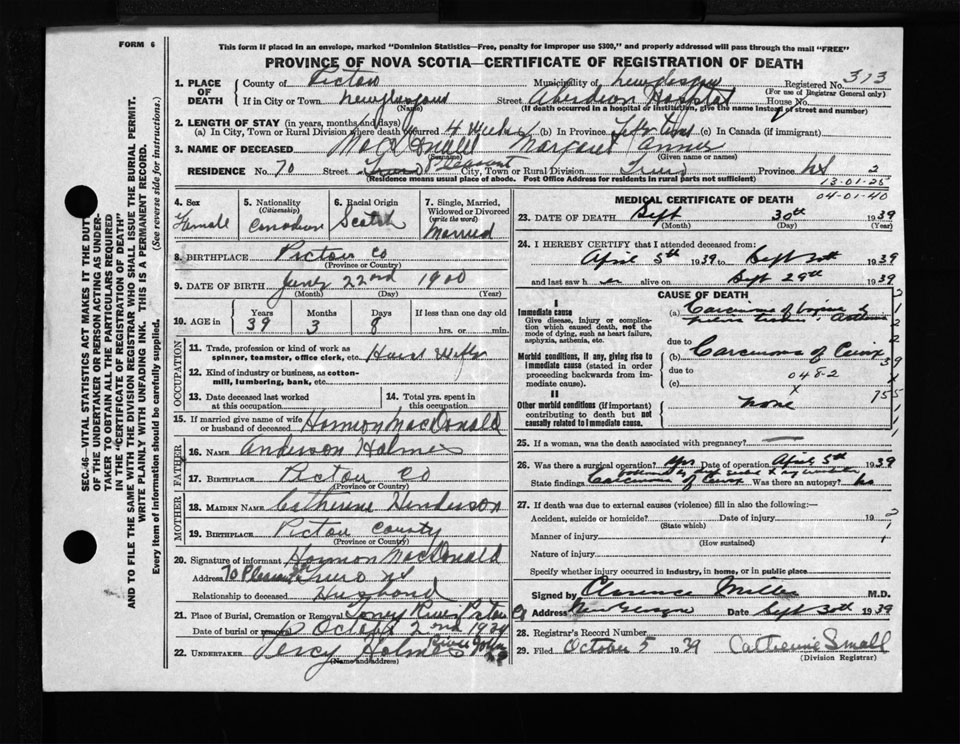 FORM 6
This form if placed in an envelope, marked "Dominion Statistics—Free, penalty for improper use $300," and properly addressed will pass through the mail "FREE"
PROVINCE OF NOVA SCOTIA—CERTIFICATE OF REGISTRATION OF DEATH
SEC. 46—VITAL STATISTICS ACT MAKES IT THE DUTY
OF THE UNDERTAKER OR PERSON ACTING AS UNDER-
TAKER TO OBTAIN ALL THE PARTICULARS REQUIRED
IN THE "CERTIFICATE OF REGISTRATION OF DEATH"
AND TO FILE THE SAME WITH THE DIVISION REGISTRAR WHO SHALL ISSUE THE BURIAL PERMIT.
WRITE PLAINLY WITH UNFADING INK. THIS IS A PERMANENT RECORD.
Every item of information should be carefully supplied. (See reverse side for instructions.)
1. PLACE OF DEATH County of Pictou Municipality of Registered No. 313
(For use of Registrar General only)
If in City or Town Street Aberdeen Hospital House No.
(Name) (If death occurred in a hospital or institution, give the name instead of street and number)
2. LENGTH OF STAY (in years, months and days)
(a) In City, Town or Rural Division where death occurred 4 Weeks (b) In Province Life time (c) In Canada (if immigrant)
3. NAME OF DECEASED MacDonald Margaret Annie
(Surname) (Given name or names)
RESIDENCE No. 70 Street Pleasant City, Town or Rural Division Truro Province NS 2
(Residence means usual place of abode. Post Office Address for residents in rural parts not sufficient)
13-01-25
04-01-40
4. Sex Female
5. Nationality (Citizenship) Canadian
6. Racial Origin Scotch
7. Single, Married, Widowed or Divorced (write the word) Married
8. BIRTHPLACE Pictou Co
(Province or Country)
9. DATE OF BIRTH June 22nd 1900
(Month) (Day) (Year)
10. AGE in Years 39 Months 3 Days 8 If less than one day hrs. or min.
OCCUPATION
11. Trade, profession or kind of work as spinner, teamster, office clerk, etc. House Wife
12. Kind of industry or business, as cotton-mill, lumbering, bank, etc.
13. Date deceased last worked at this occupation
14. Total yrs. spent in this occupation
15. If married give name of wife or husband of deceased Harmon MacDonald
FATHER
16. NAME Anderson Holmes
17. BIRTHPLACE Pictou Co
(Province or Country)
MOTHER
18. MAIDEN NAME Catherine Henderson
19. BIRTHPLACE Pictou County
(Province or Country)
20. Signature of informant Harmon MacDonald
Address 70 Pleasant St Truro NS
Relationship to deceased Husband
21. Place of Burial, Cremation or Removal River Pictou Co
Date of burial or removal Octobr 2nd 1939
22. UNDERTAKER Percy Holmes River John NS
(Name and address)
MEDICAL CERTIFICATE OF DEATH
23. DATE OF DEATH Sept 30th 1939
(Month) (Day) (Year)
24. I HEREBY CERTIFY that I attended deceased from:
April 5th 1939 to Sept 30th 1939
and last saw her alive on Sept 29th 1939
CAUSE OF DEATH
I
Immediate cause
Give disease, injury or complication which caused death, not the mode of dying, such as heart failure, asphyxia, asthenia, etc.
(a) Carcinoma of
due to
Morbid conditions, if any, giving rise to immediate cause (stated in order proceeding backwards from immediate cause).
(b) Carcinoma of Cervix
due to
(c) 048-2
x
II
Other morbid conditions (if important) contributing to death but not causally related to immediate cause.
None
25. If a woman, was the death associated with pregnancy?
26. Was there a surgical operation? Date of operation April 5th 1939
State findings Carcinoma of Cervix Was there an autopsy? No
27. If death was due to external causes (violence) fill in also the following:—
Accident, suicide or homicide? Date of injury 19
(State which)
Manner of injury
(How sustained)
Nature of injury
Specify whether injury occurred in industry, in home, or in public place
Signed by Clarence Miller M.D.
Address New Glasgow Date Sept 30th 1939
28. Registrar's Record Number
29. Filed October 5 1939 Catherine Small
(Division Registrar)